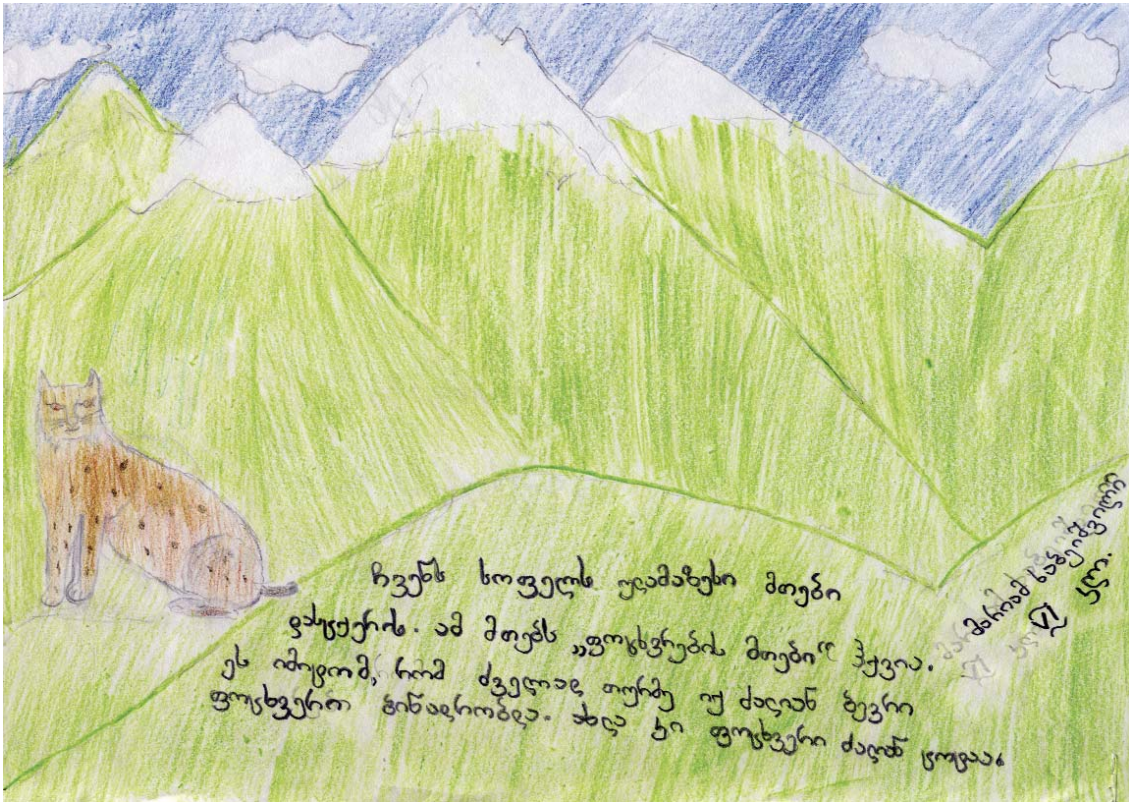 ჩვენს სოფელს ულამაზესი მთები
დასცქერის. ამ მთებს „ფოცხვრების მთები“ ჰქვია.
ეს იმიტომ, რომ ძველად თურმე იქ ძალიან ბევრი
ფოცხვერი ბინადრობდა. ახლა კი ფოცხვერი ძალიან ცოტაა.
მარიამ ხაბეიშვილი
VI კლ.